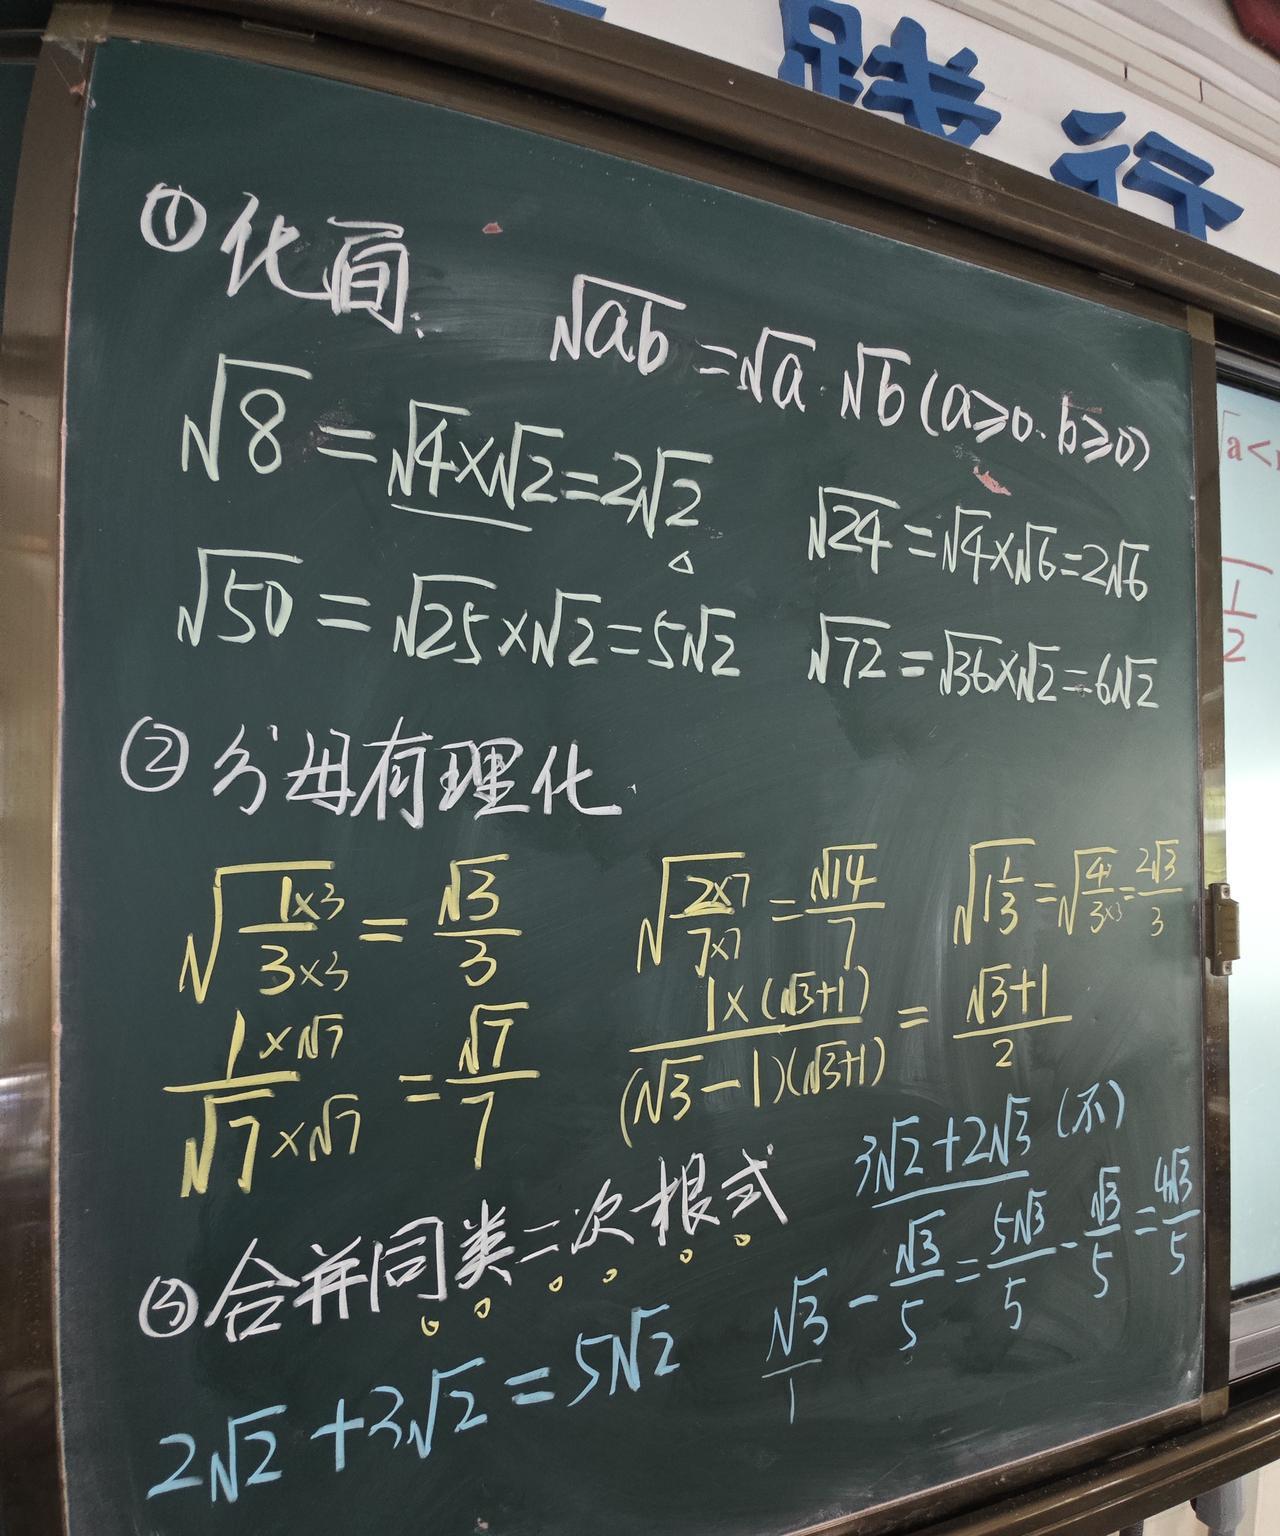 践行
①化简:
√ab = √a·√b (a≥0, b≥0)
√8 = √4×√2 = 2√2
√24 = √4×√6 = 2√6
√50 = √25×√2 = 5√2
√72 = √36×√2 = 6√2
②分母有理化
√(1×3/3×3) = √3/3
√(2×7/7×7) = √14/7
√(1 1/3) = √(4/3×3) = 2√3/3
1×√7/√7×√7 = √7/7
1×(√3+1)/(√3-1)(√3+1) = √3+1/2
③合并同类二次根式
3√2+2√3 (不)
2√2+3√2 = 5√2
√3/1 - √3/5 = 5√3/5 - √3/5 = 4√3/5
a<
1/2